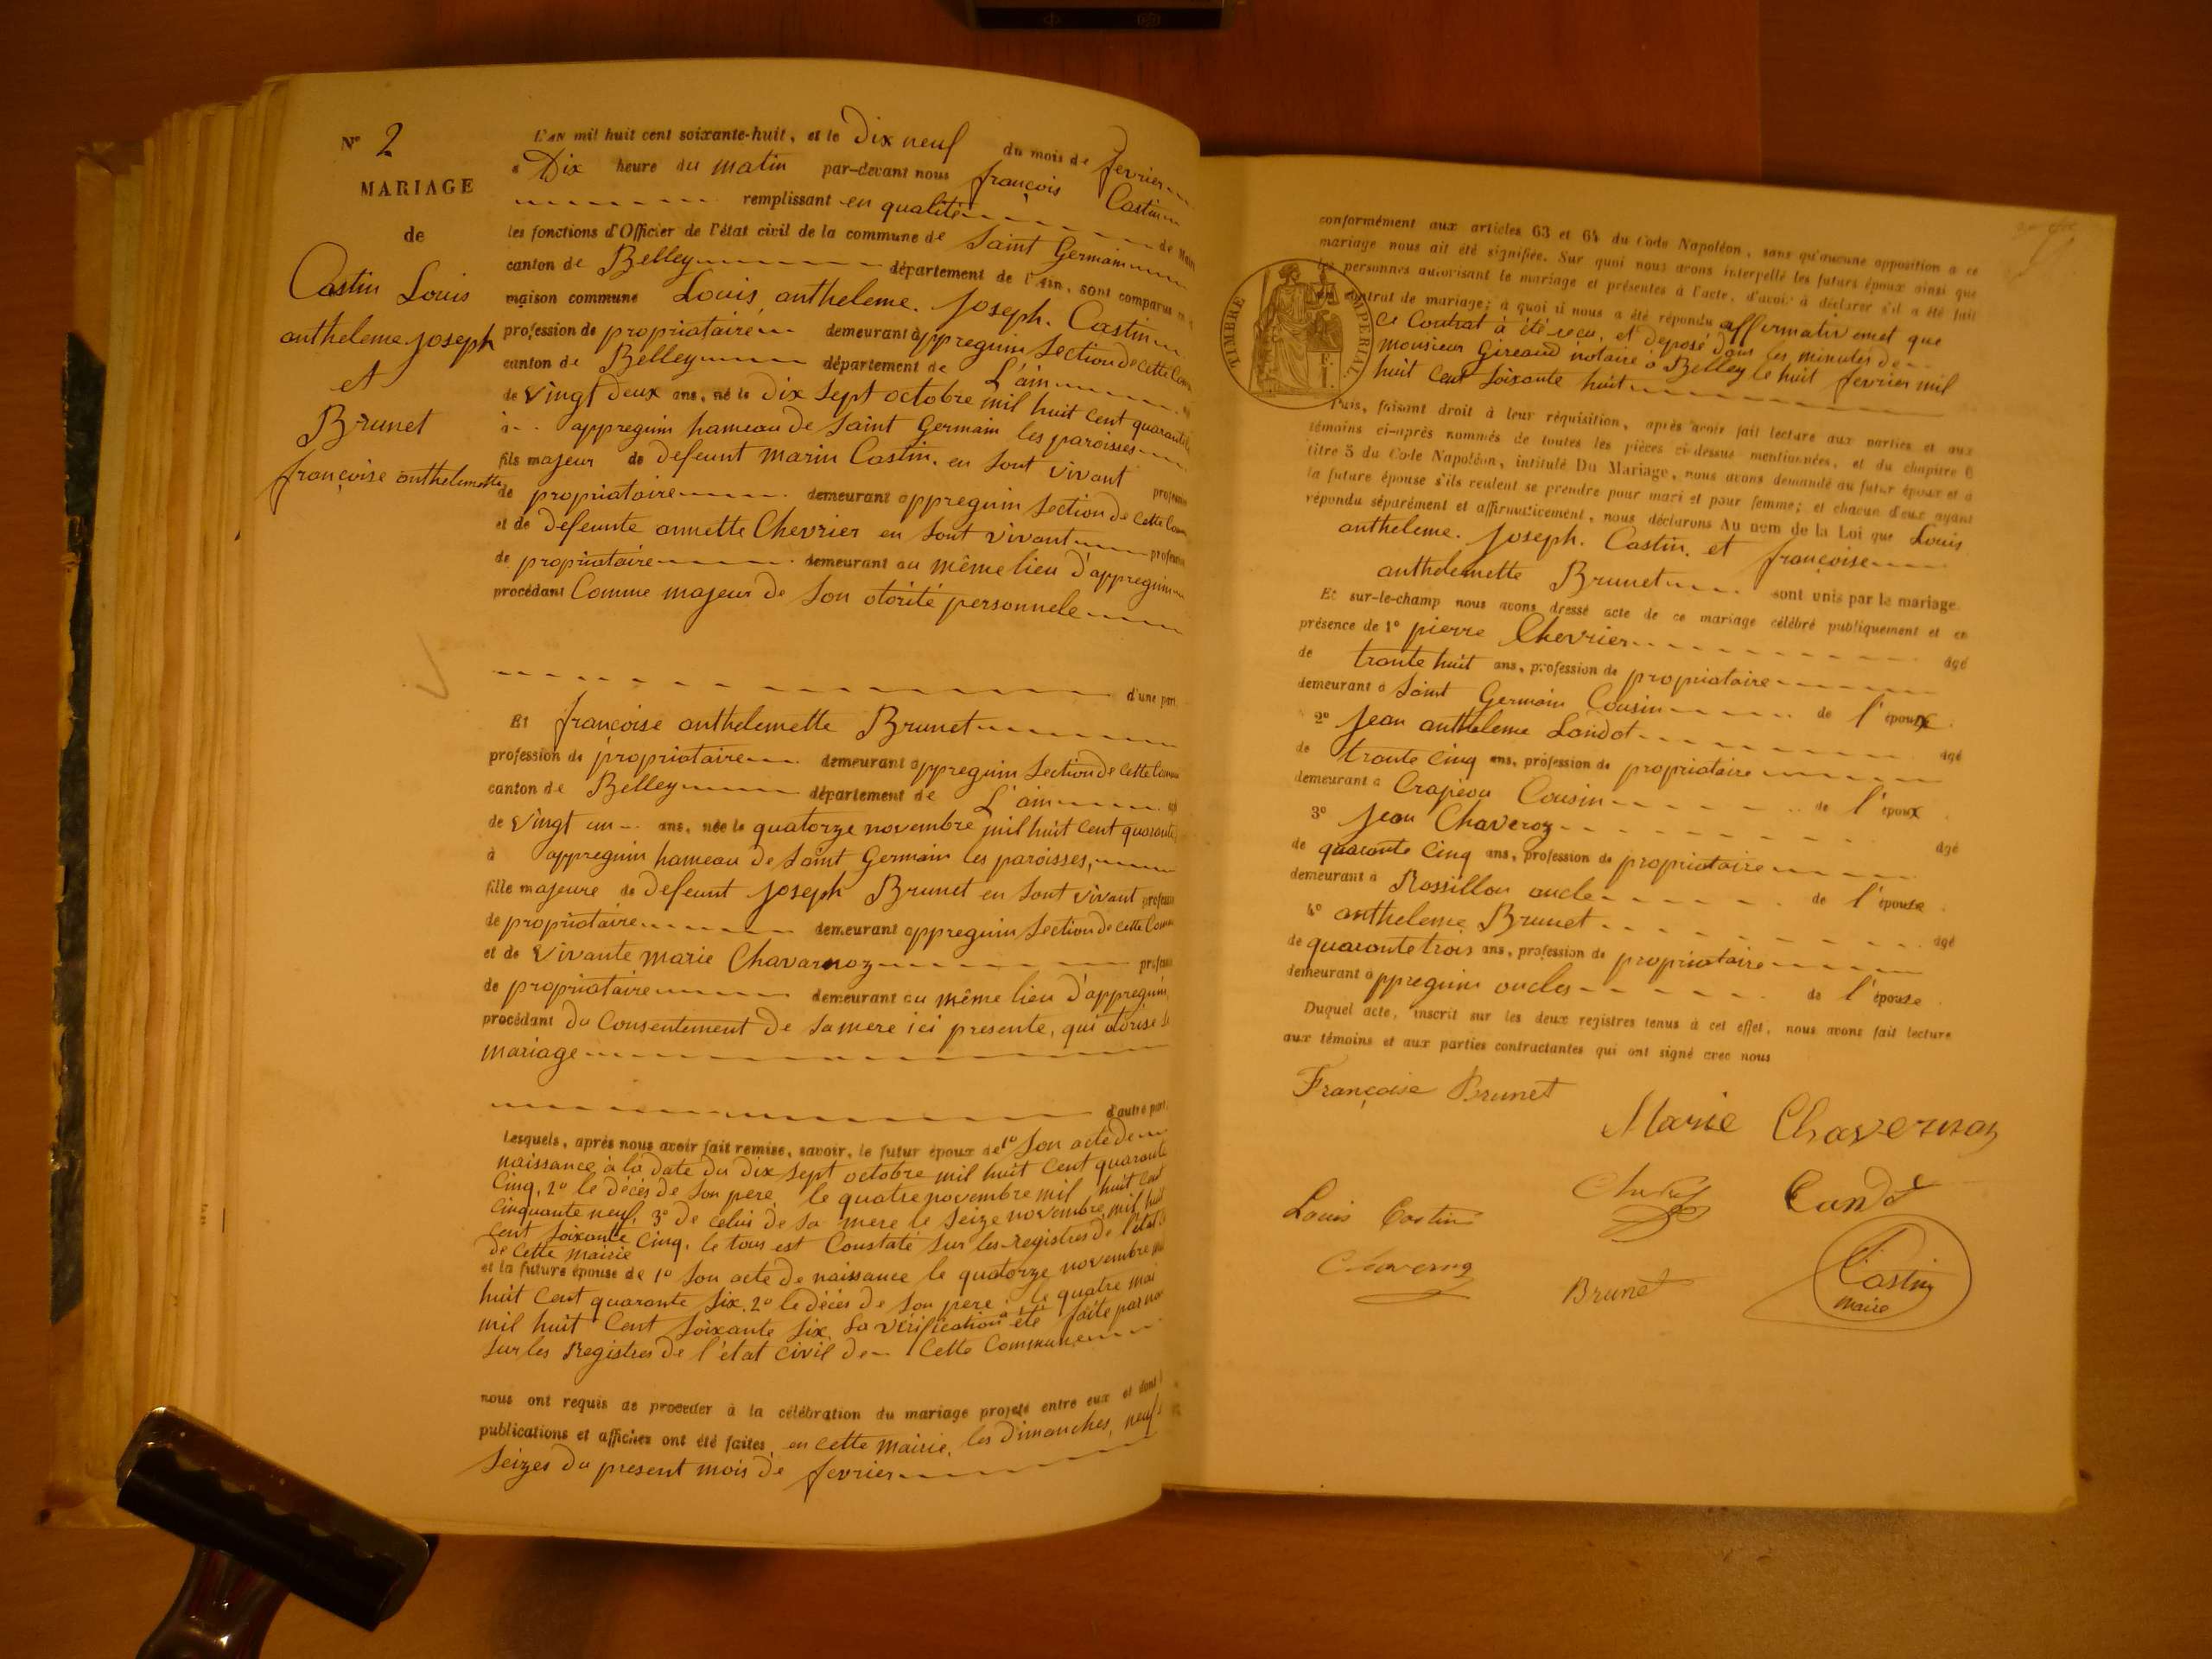 N° 2
MARIAGE
de
Castin Louis
antheleme joseph
et
Brunet
françoise anthelemette
L'AN mil huit cent soixante-huit, et le Dix neuf du mois de fevrier
a Dix heure du matin par-devant nous françois Castin
remplissant en qualité de
les fonctions d'Officier de l'état civil de la commune de Saint Germain
canton de Belley département de l'Ain, sont comparus
maison commune Louis antheleme. Joseph. Castin
profession de propriataire demeurant appregnin Section de cette
canton de Belley département de L'ain
de vingt deux ans, né le dix sept octobre mil huit cent quarante
à appregnin hameau de Saint Germain les paroisses
fils majeur de defeunt marin Castin, en sont vivant
de propriataire demeurant appregnin Section de cette
et de defeunte annette Chevrier en sont vivant
de propriataire demeurant au même lieu d'appregnin
procédant Comme majeur de Son otorité personnele
d'une part
Et françoise anthelemette Brunet
profession de propriataire demeurant appregnin Section de cette
canton de Belley département de L'ain
de vingt un ans, née le quatorze novembre mil huit cent quarante
à appregnin hameau de Saint Germain les paroisses,
fille majeure de defeunt Joseph Brunet en sont vivant
de propriataire demeurant appregnin Section de cette
et de vivante marie Chavarnoz
de propriataire demeurant au même lieu d'appregnin
procédant du Consentement de sa mere ici presente, qui otorise
mariage
d'autre part
Lesquels, après nous avoir fait remise, savoir, le futur époux de 1° Son acte de
naissance à la date du dix sept octobre mil huit cent quarante
Cinq, 2° le décès de Son pere, le quatre novembre mil huit cent
Cinquante neuf, 3° de celui de sa mere le Seize novembre mil huit
Cent Soixante Cinq, le tous est Constaté Sur les registres de l'état
de cette mairie
et la future épouse de 1° Son acte de naissance le quatorze novembre
huit Cent quarante Six. 2° le décès de Son pere, le quatre mai
mil huit Cent Soixante Six, la vérification a été faite par
Sur les Registres de l'état civil de Cette Commune
nous ont requis de procéder à la célébration du mariage projeté entre eux et dont
publications et affiches ont été faites, en cette mairie, les dimanches, neuf
Seizes du present mois de fevrier
conformément aux articles 63 et 64 du Code Napoléon, sans qu'aucune opposition a ce
mariage nous ait été signifiée. Sur quoi nous avons interpellé les futurs époux ainsi que
les personnes autorisant le mariage et présentes à l'acte, d'avoir à déclarer s'il a été fait
un contrat de mariage; à quoi il nous a été répondu affirmativemet que
Ce Contrat à été recu, et deposé dans les minutes de
monsieur Gireaud notaire à Belley le huit fevrier mil
huit Cent Soixante huit
TIMBRE IMPERIAL
Puis, faisant droit à leur réquisition, après avoir fait lecture aux parties et aux
témoins ci-après nommés de toutes les pièces ci-dessus mentionnées, et du chapitre 6
titre 5 du Code Napoléon, intitulé Du Mariage, nous avons demandé au futur époux et à
la future épouse s'ils veulent se prendre pour mari et pour femme; et chacun d'eux ayant
répondu séparément et affirmativement, nous déclarons Au nom de la Loi que Louis
antheleme. Joseph. Castin. et françoise
anthelemette Brunet sont unis par le mariage
Et sur-le-champ nous avons dressé acte de ce mariage célébré publiquement et en
présence de 1° pierre Chevrier âgé
de trante huit ans, profession de propriataire
demeurant à Saint Germain Cousin de l'époux
2° Jean antheleme Landot âgé
de trante Cinq ans, profession de propriataire
demeurant à Crapéou Cousin de l'époux
3° Jean Chaveroz âgé
de quarante Cinq ans, profession de propriataire
demeurant à Rossillon oncle de l'épouse
4° antheleme Brunet âgé
de quarante trois ans, profession de propriataire
demeurant appregnin oncles de l'épouse
Duquel acte, inscrit sur les deux registres tenus à cet effet, nous avons fait lecture
aux témoins et aux parties contractantes qui ont signé avec nous
Françoise Brunet
Marie Chavernoz
Louis Castin
Brunet
Castin
maire